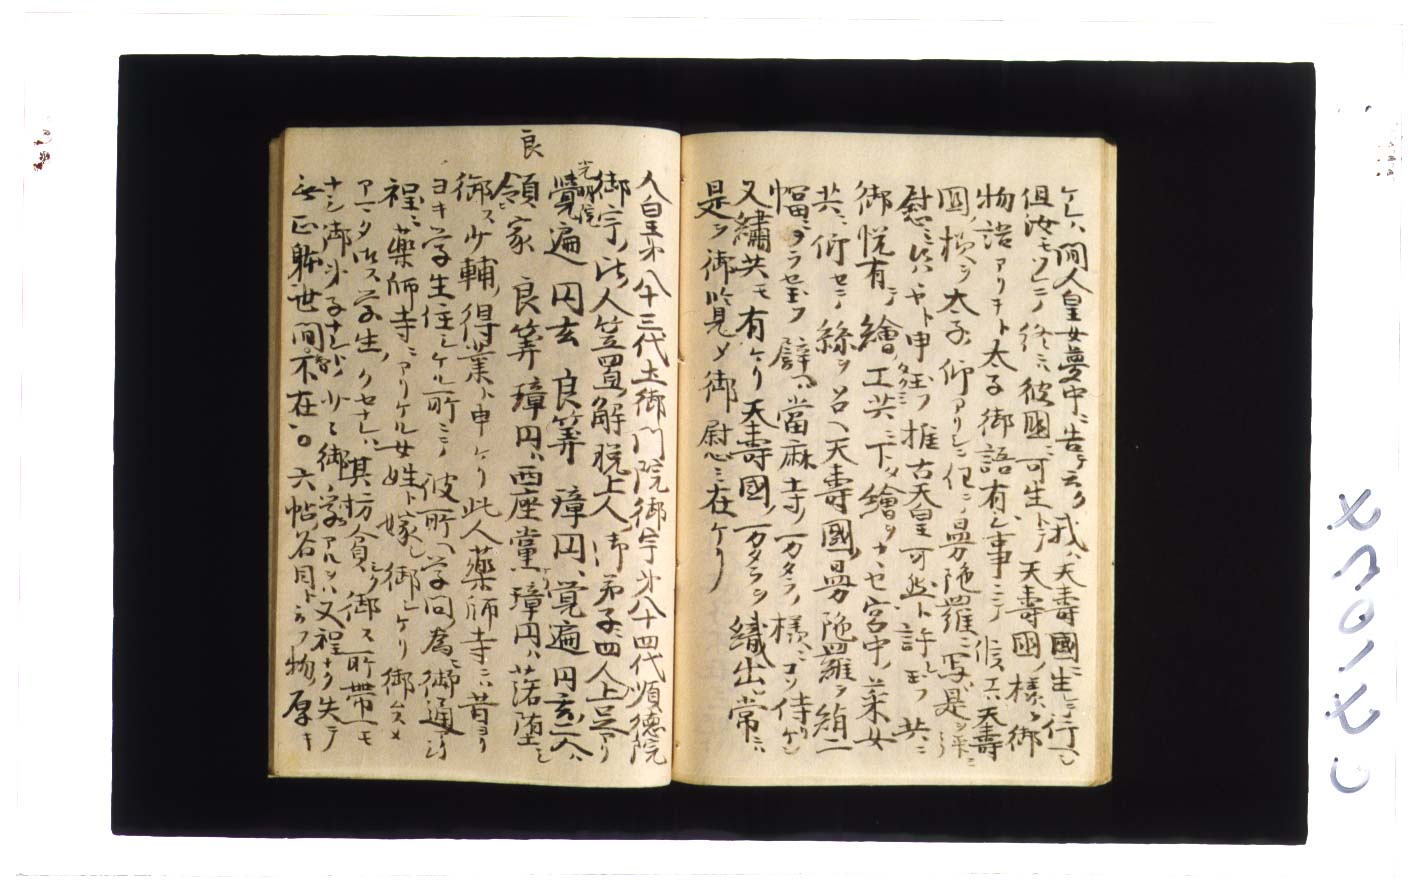 ケレハ間人皇女夢中ニ告テ云ク我ハ天壽國ニ生ニ行ヘシ
但汝モソレニノ終ニ彼國ニ可生トテ天壽國ノ様ヲ御
物語アリキト太子御語有シ事ミテ天壽
國ノ様ヲ太子ノ仰アリシ但ニ曼陁羅ニ写シ是ヲ
慰ミハヤト申玉フ推古天皇可然ト許シ玉フ共ニ
御悦有テ繪工共ニ下メ繪ヲカヽセ宮中ノ菜女
共ニ仰セテ絲ヲ召ヘ天壽國ノ曼陁羅ヲ絹二
幅ニヲラセ玉フ譬ヘハ當麻寺ノ万タラノ様ニコソ侍リケン
又繍共モ有ケリ天壽國ノ万タラヲ織出シ常ニ
是ヲ御覧メ御慰ミ在ケリ
人皇第八十三代土御門院御宇第八十四代順徳院
御宇ノ比人笠置ノ解脱上人ノ御弟子ニ四人上足アリ
光明院
覺遍 円玄 良筭 璋円 覚遍円玄二人ハ
良
領家 良筭璋円ハ西座黨璋円ハ落堕シ
御ス少輔得業ト申ケリ此人薬師寺ニハ昔ヨリ
ヨキ学生住シケル所ニテ彼所ヘ学問ノ為ニ御通アリ
程ニ薬師寺ニアリケル女姓ト嫁シ御シケリ御ムスメ
アマタ御ス学生ノクセナレハ其方貧シク御ス所帯一モ
ナシ御弟子ナンドノ少々御学アルヲハ又程ナク失テ
正躰世間不在○六帖ノ名目ト云フ物ノ厚キ